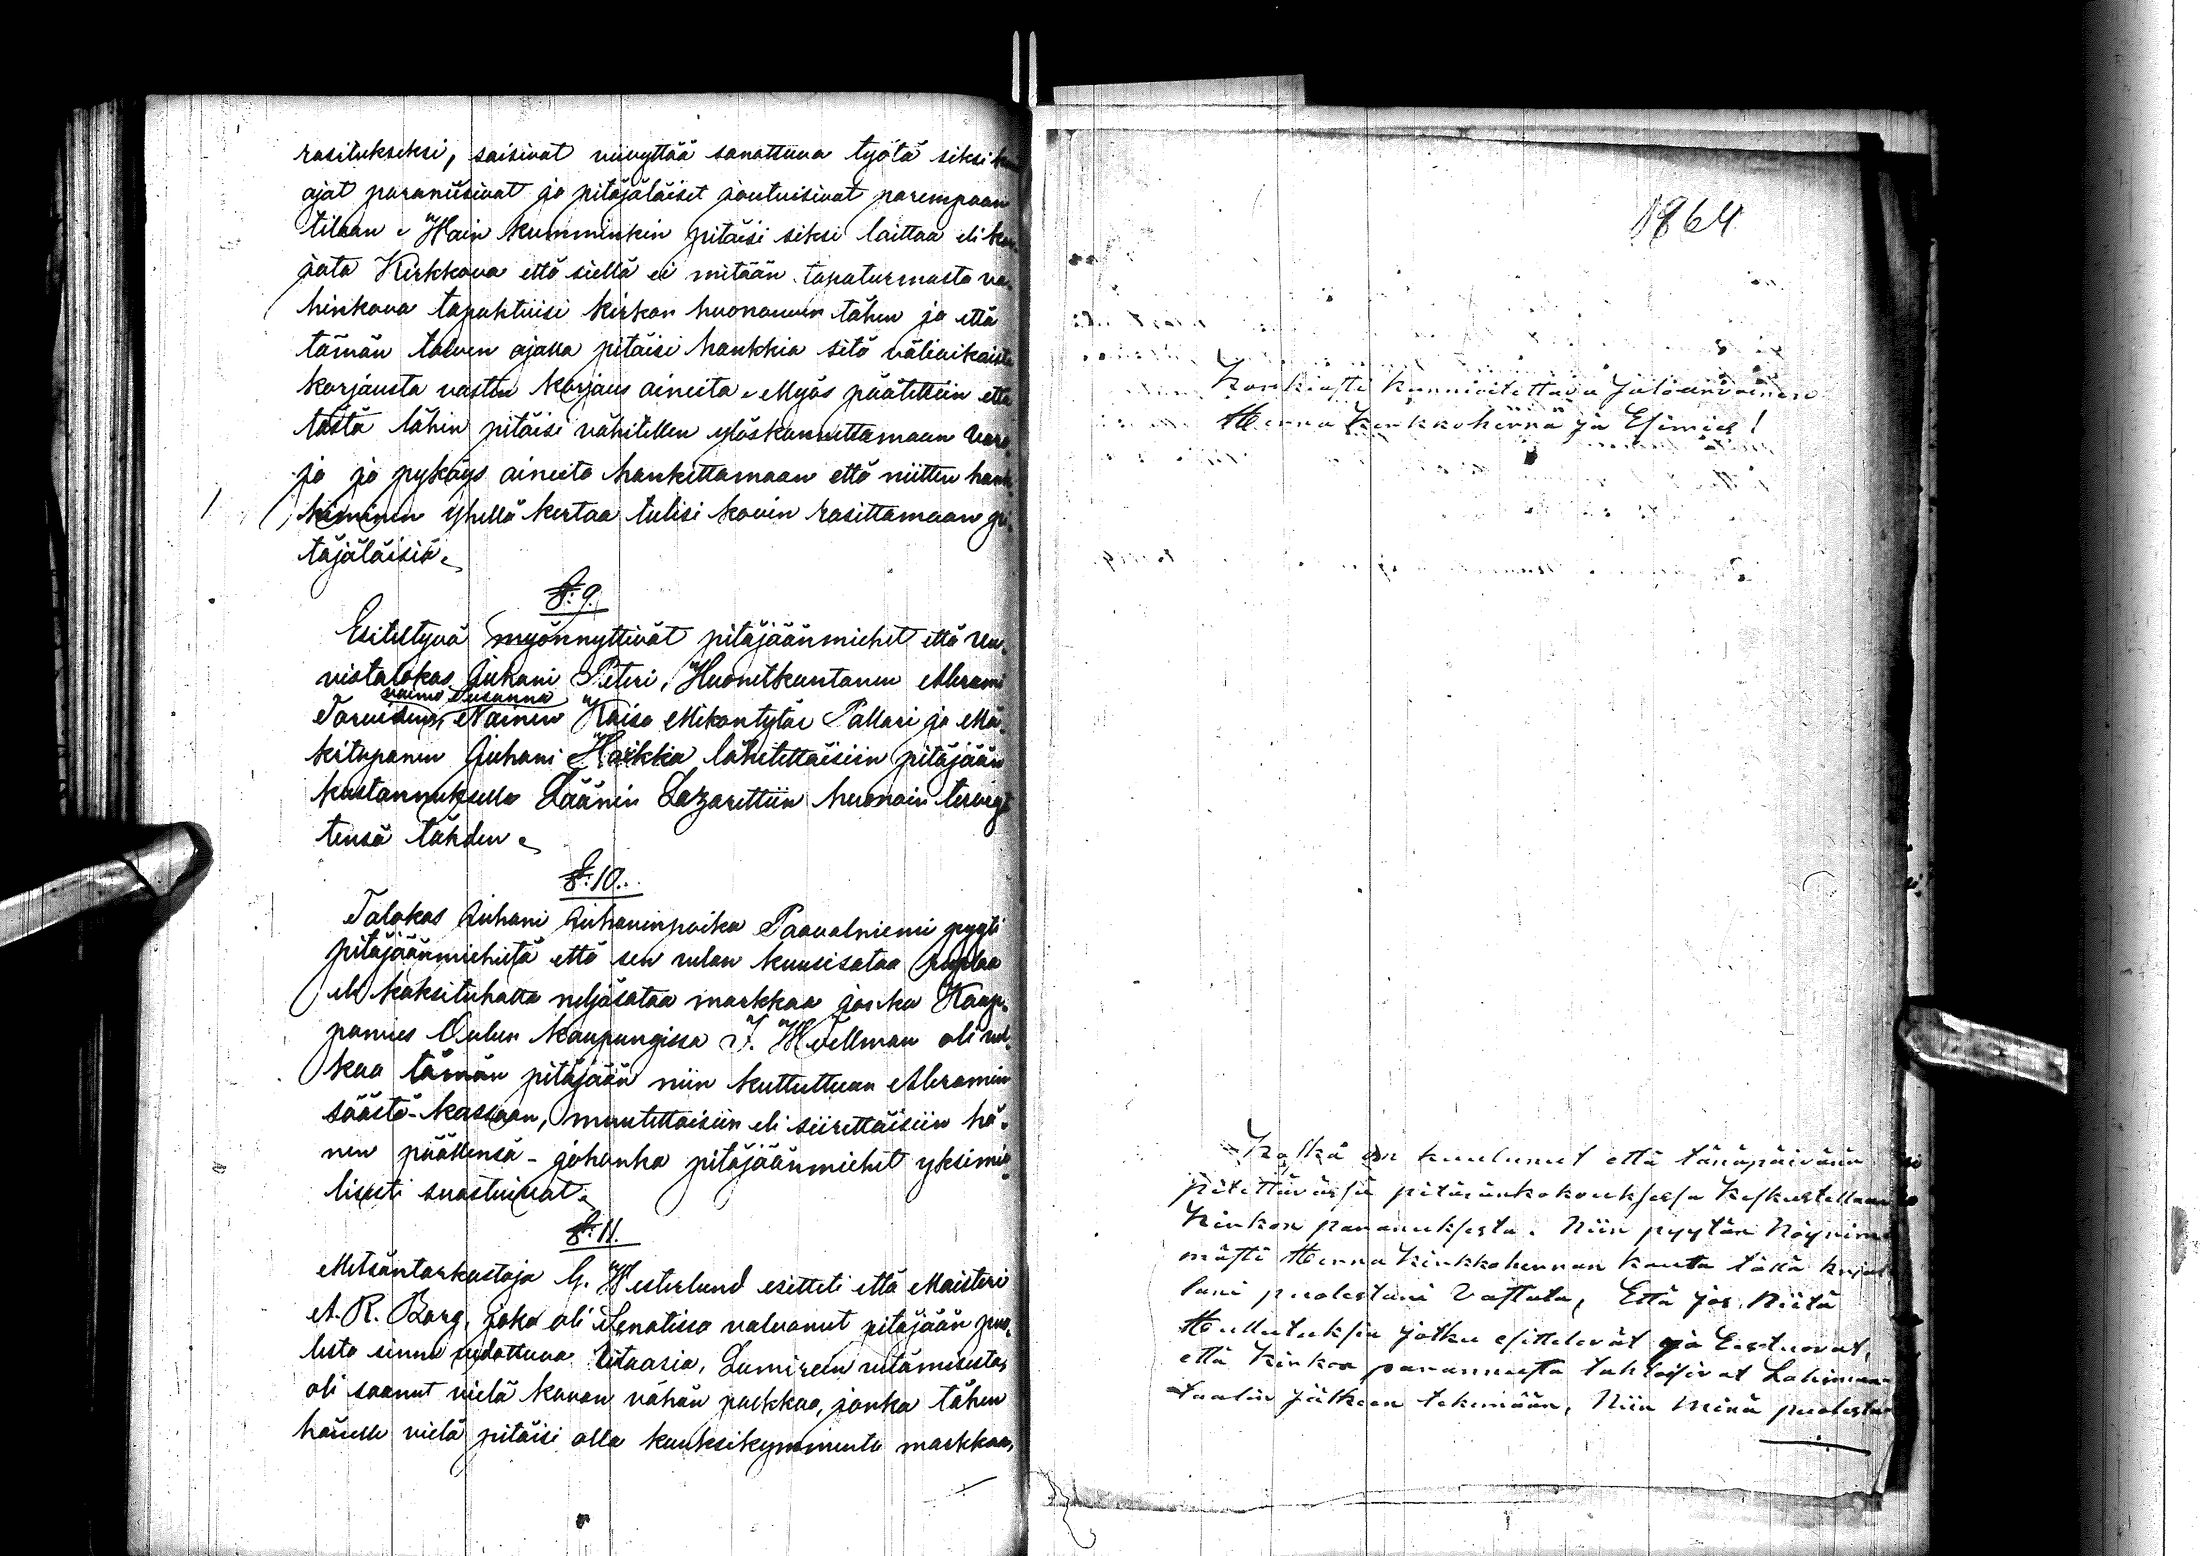 rasitukseksi, saisivat viivyttää sanottuva työtä siksi kun
ajat paraniisivat ja pitäjäläiset joutuisivat parempaan
tilaan. Wain kumminkin pitäisi siksi laittaa eli kor-
jata Kirkkova että siellä ei mitään tapaturmasta va-
hinkova tapahtuisi kirkon huonouven tähen ja että
tämän talven ajalla pitäisi hankkia sitä väliaikaista
korjausta vasten korjaus aineita. Myös päätettiin että
tästä lähin pitäisi vähitellen ylöskannettamaan varo-
ja ja pykäys aineita hankittamaan että niitten hank-
kiminen yhellä kertaa tulisi kovin rasittamaan pi-
täjäläisiä.
§: 9.
Esitettyvä myönnyttivät pitäjäänmiehet että
Juhani Peteri, Huonetkuntanen Abram
vaimo Susanna
Nainen Kaisa Mikontytär Pallari ja Mä-
kitupanen Juhani Harkka lähetettäisiin pitäjään
kustannuksella Läänin Lazarettiin huonoin
tensä tähden.
§: 10.
Talokas Juhani Juhaninpoika Paavalniemi pyyti
pitäjäänmiehiltä että sen velan kuusisataa ruplaa
eli kaksituhatta neljäsataa markkaa jonka Kaup-
pamies Oulun kaupungissa J. W. Snellman oli vel-
kaa tämän pitäjään niin kuttuttuun Abramin
säästö-kassaan, muutettaisiin eli siirettäisiin hä-
nen päällensä - johonka pitäjäänmiehet yksimie-
lisesti suostuivat.
§: 11.
Metsäntarkastaja G. Westerlund esitteli että Maisteri
A. R. Borg, joka oli Senatissa valvonut pitäjään puo-
lesta sinne vedottuva riitaasia, Lumireen vetämisestä,
oli saanut vielä kovan vähän palkkaa, jonka tähen
hänelle vielä pitäisi olla kaksikymmentä markkaa,
1864
Korkiasti kunnioitettava Jaloarvoinen
Herra Kirkkoherra ja Esimies!
Koska on kuulunut että tänäpäivänä
pitettävässä pitäjänkokouksessa keskustellaan
Kirkon parannuksesta. Niin pyytän Nöyrim-
mästi Herra Kirkkoherran kautta tällä kirjal-
lani puolestani Vastata, Että jos Niitä
jotka esittelevät ja Eestuovat,
että kirkon parannusta tahtoisivat
jälkeen tekemään, Niin minä puolesta